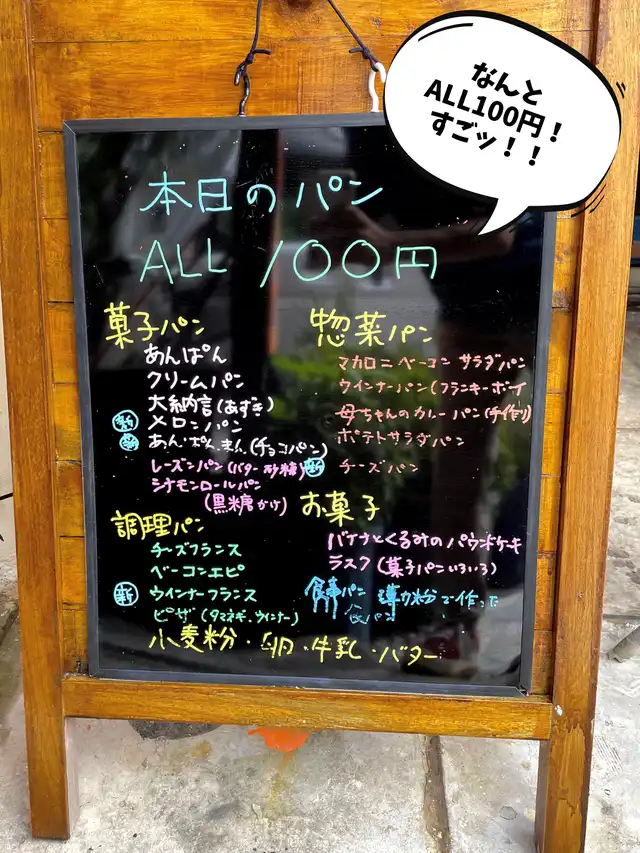 なんと
ALL100円！
すごッ！！
本日のパン
ALL 100円
菓子パン
あんぱん
クリームパン
大納言(あずき)
新 メロンパン
新 あん.ぱん.まん.(チョコパン)
レーズンパン(バター砂糖)
シナモンロールパン
(黒糖かけ)
調理パン
チーズフランス
ベーコンエピ
新 ウインナーフランス
ピザ(タマネギ.ウインナー)
惣菜パン
マカロニベーコンサラダパン
ウインナーパン(フランキーボーイ
母ちゃんのカレーパン(手作り)
ポテトサラダパン
新 チーズパン
お菓子
バナナとくるみのパウンドケーキ
ラスク(菓子パンいろいろ)
食事パン 薄力粉で作った
パン
小麦粉・卵・牛乳・バター